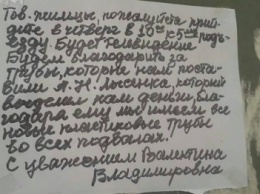 Тов. жильцы, пожалуйста прий
дите в четверг в 10⁰⁰ к 5му подъ-
езду. Будет телевидение
Будем благодарить за
трубы, которые нам поста-
вили А.Н. Лысенка, который
выделил нам деньги, бла-
годаря ему мы имеем все
новые пластиковые трубы
во всех подвалах.
С уважением Валентина
Владимировна